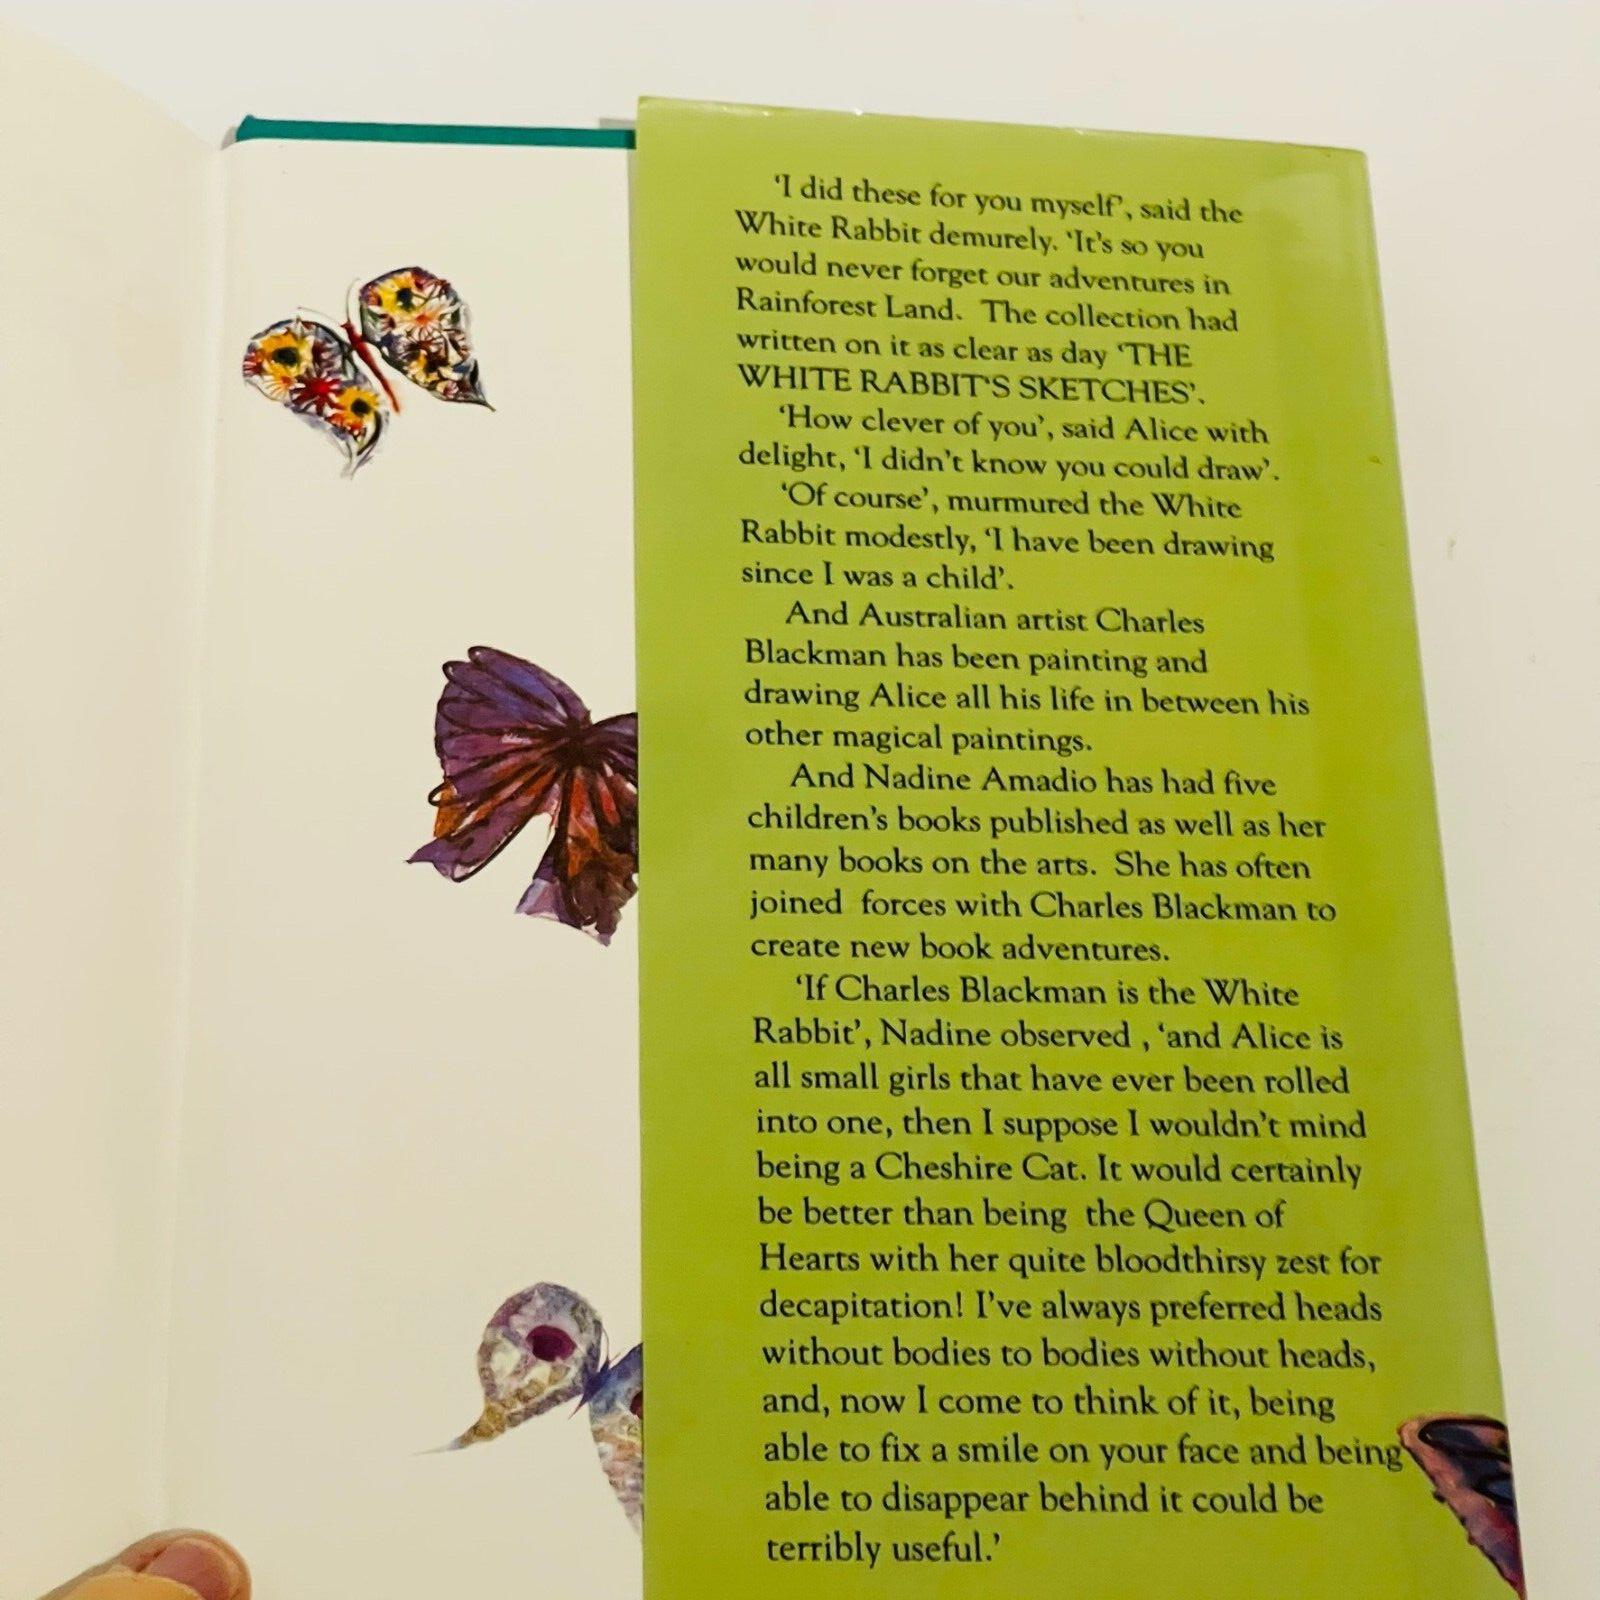 ‘I did these for you myself’, said the
White Rabbit demurely. ‘It's so you
would never forget our adventures in
Rainforest Land.  The collection had
written on it as clear as day ‘THE
WHITE RABBIT‘S SKETCHES’.
‘How clever of you’, said Alice with
delight, ‘I didn’t know you could draw’.
‘Of course’, murmured the White
Rabbit modestly, ‘I have been drawing
since I was a child’.
And Australian artist Charles
Blackman has been painting and
drawing Alice all his life in between his
other magical paintings.
And Nadine Amadio has had five
children’s books published as well as her
many books on the arts.  She has often
joined  forces with Charles Blackman to
create new book adventures.
‘If Charles Blackman is the White
Rabbit’, Nadine observed , ‘and Alice is
all small girls that have ever been rolled
into one, then I suppose I wouldn’t mind
being a Cheshire Cat. It would certainly
be better than being  the Queen of
Hearts with her quite bloodthirsy zest for
decapitation! I’ve always preferred heads
without bodies to bodies without heads,
and, now I come to think of it, being
able to fix a smile on your face and being
able to disappear behind it could be
terribly useful.’